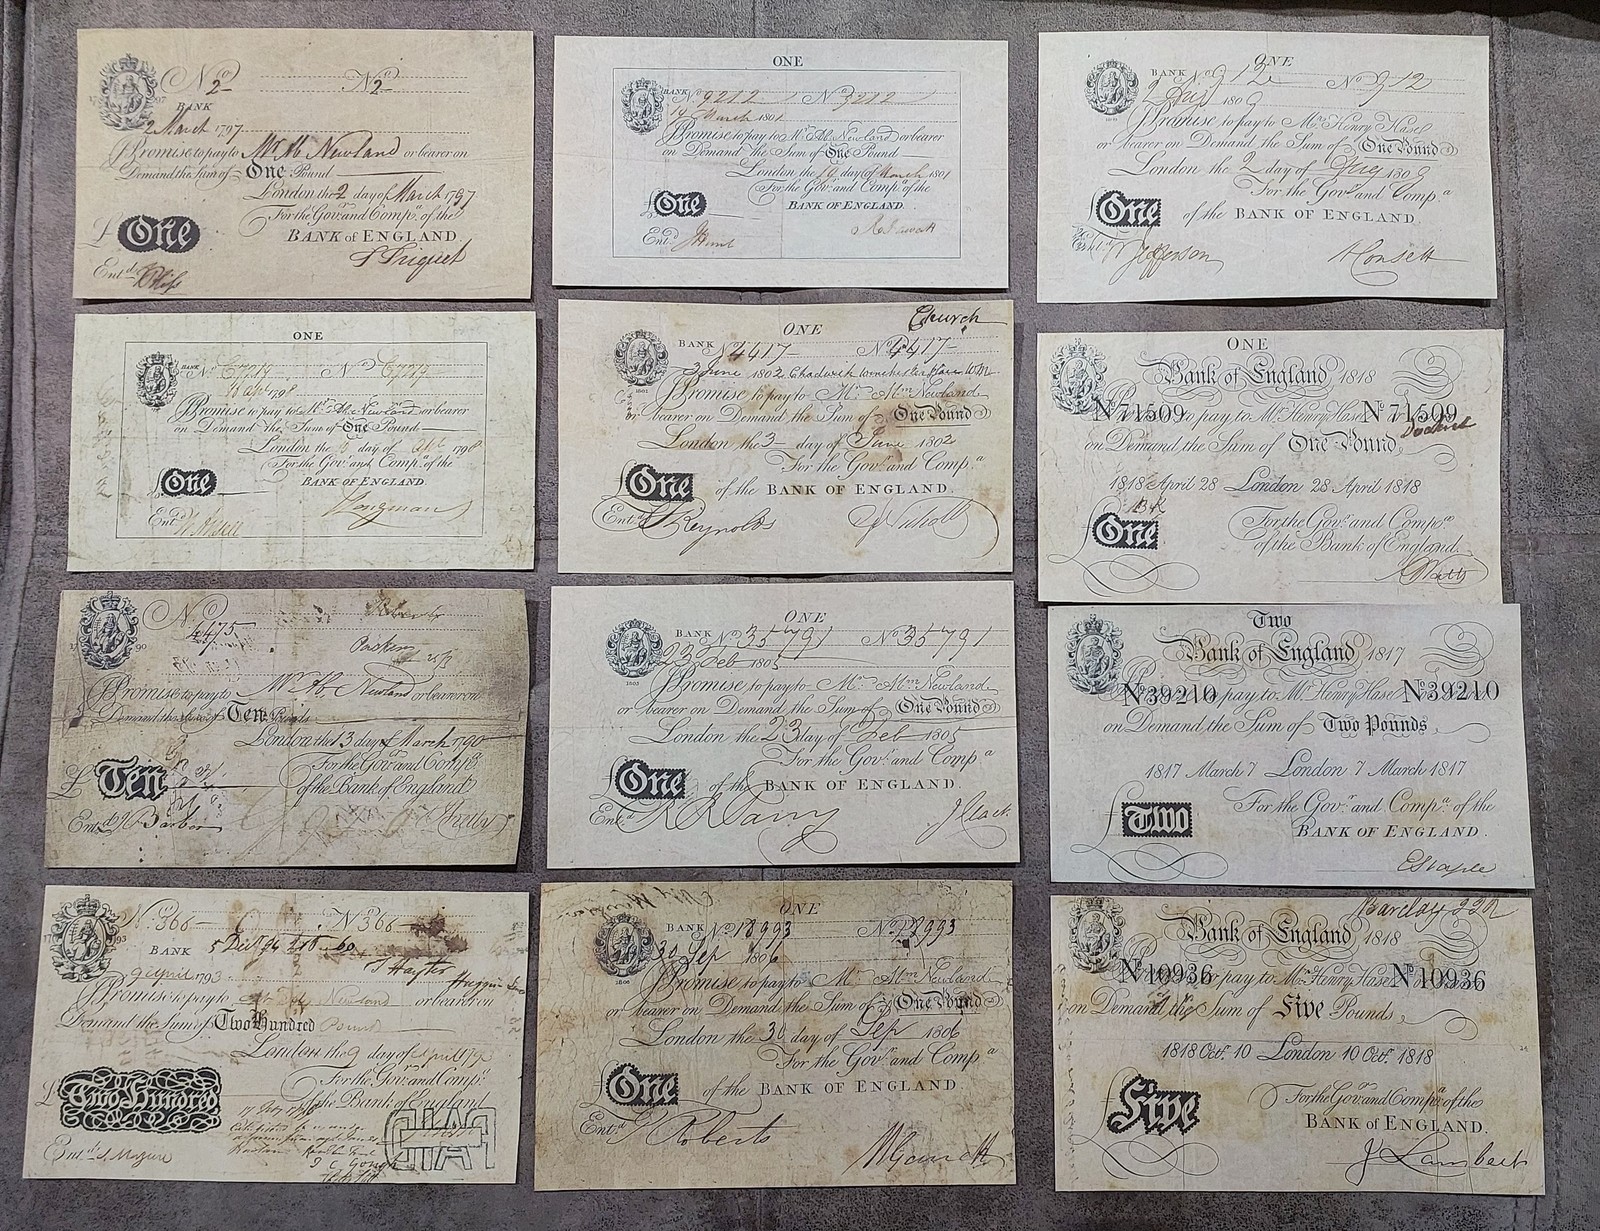 No 2 No 2
BANK
2 March 1797
I Promise to pay to Mr Ab Newland or bearer on
Demand the Sum of One Pound
London the 2 day of March 1797
For the Govr. and Compa. of the
BANK of ENGLAND.
£ One
Entd.
ONE
BANK No 9212 No 9212
19 March 1801
I Promise to pay to Mr. Ab. Newland or bearer
on Demand the Sum of One Pound
London the 19 day of March 1801
For the Govr. and Compa. of the
BANK OF ENGLAND.
£ One
Entd.
ONE
BANK No 912 No 912
2 Aug 1809
I Promise to pay to Mr. Henry Hase
or bearer on Demand the Sum of One Pound
London the 2 day of Aug 1809
For the Govr. and Compa.
£ One of the BANK OF ENGLAND.
Entd. Jefferson
ONE
BANK No No
I Promise to pay to Mr. Ab. Newland or bearer
on Demand the Sum of One Pound
London the day of 1798
For the Govr. and Compa. of the
£ One BANK OF ENGLAND.
Entd. Longman
ONE Church
BANK No 4417 No 4417
3 June 1802
1801
I Promise to pay to Mr. Abm. Newland
or bearer on Demand the Sum of One Pound
London the 3 day of June 1802
For the Govr. and Compa.
£ One of the BANK OF ENGLAND.
Entd. Reynolds
ONE
Bank of England 1818
No 71509 to pay to Mr. Henry Hase No 71509
on Demand the Sum of One Pound
1818 April 28 London 28 April 1818
£ One For the Govr. and Compa.
of the Bank of England.
No
4475
17 90
I Promise to pay to Mr Ab Newland or bearer on
Demand the Sum of Ten Pounds
London the 13 day of March 1790
For the Govr. and Compa.
£ Ten of the Bank of England
Entd. Barber
ONE
BANK No 35791 No 35791
23 Feb 1805
1803
I Promise to pay to Mr. Abm. Newland
or bearer on Demand the Sum of One Pound
London the 23 day of Feb 1805
For the Govr. and Compa.
£ One of the BANK OF ENGLAND.
Entd.
Two
Bank of England 1817
No 39210 pay to Mr. Henry Hase No 39210
on Demand the Sum of Two Pounds
1817 March 7 London 7 March 1817
For the Govr. and Compa. of the
£ Two BANK OF ENGLAND.
No 366 No 366
BANK
17 93
9 April 1793
I Promise to pay to Newland or bearer on
Demand the Sum of Two Hundred Pound
London the 9 day of April 1793
For the Govr. and Compa.
£ Two Hundred of the Bank of England
PAID
Entd.
ONE
BANK No 18993 No 18993
30 Sep 1806
1806
I Promise to pay to Mr. Abm. Newland
or bearer on Demand the Sum of One Pound
London the 30 day of Sep 1806
For the Govr. and Compa.
£ One of the BANK OF ENGLAND.
Entd. Roberts
Barclay
Bank of England 1818
No 10936 pay to Mr. Henry Hase No 10936
on Demand the Sum of Five Pounds
1818 Octr. 10 London 10 Octr. 1818
For the Govr. and Compa. of the
£ Five BANK OF ENGLAND.
J Lambert